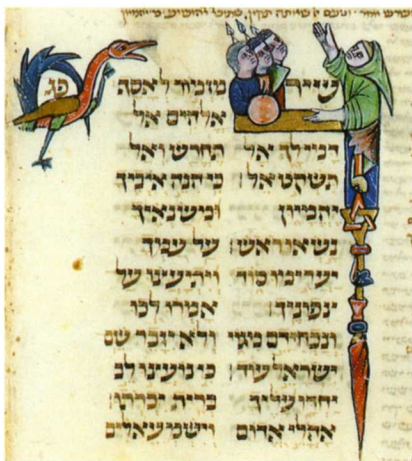 פג
שיר מזמור לאסף
אלהים אל
דמי לך אל תחרש ואל
תשקט אל׃ כי הנה איביך
יהמיון ומשנאיך
נשאו ראש׃ על עמך
יערימו סוד ויתיעצו על
צפוניך׃ אמרו לכו
ונכחידם מגוי ולא יזכר שם
ישראל עוד׃ כי נועצו לב
יחדו עליך ברית יכרתו׃
אהלי אדום וישמעאלים